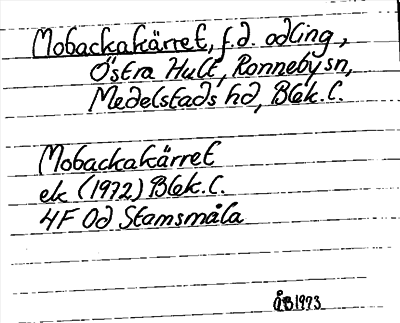 Mobackakärret, f.d. odling,
Östra Hult, Ronneby sn,
Medelstads hd, Blek.l.
Mobackakärret
ek (1972) Blek.l.
4F 0d Stamsmåla
ÅB 1973